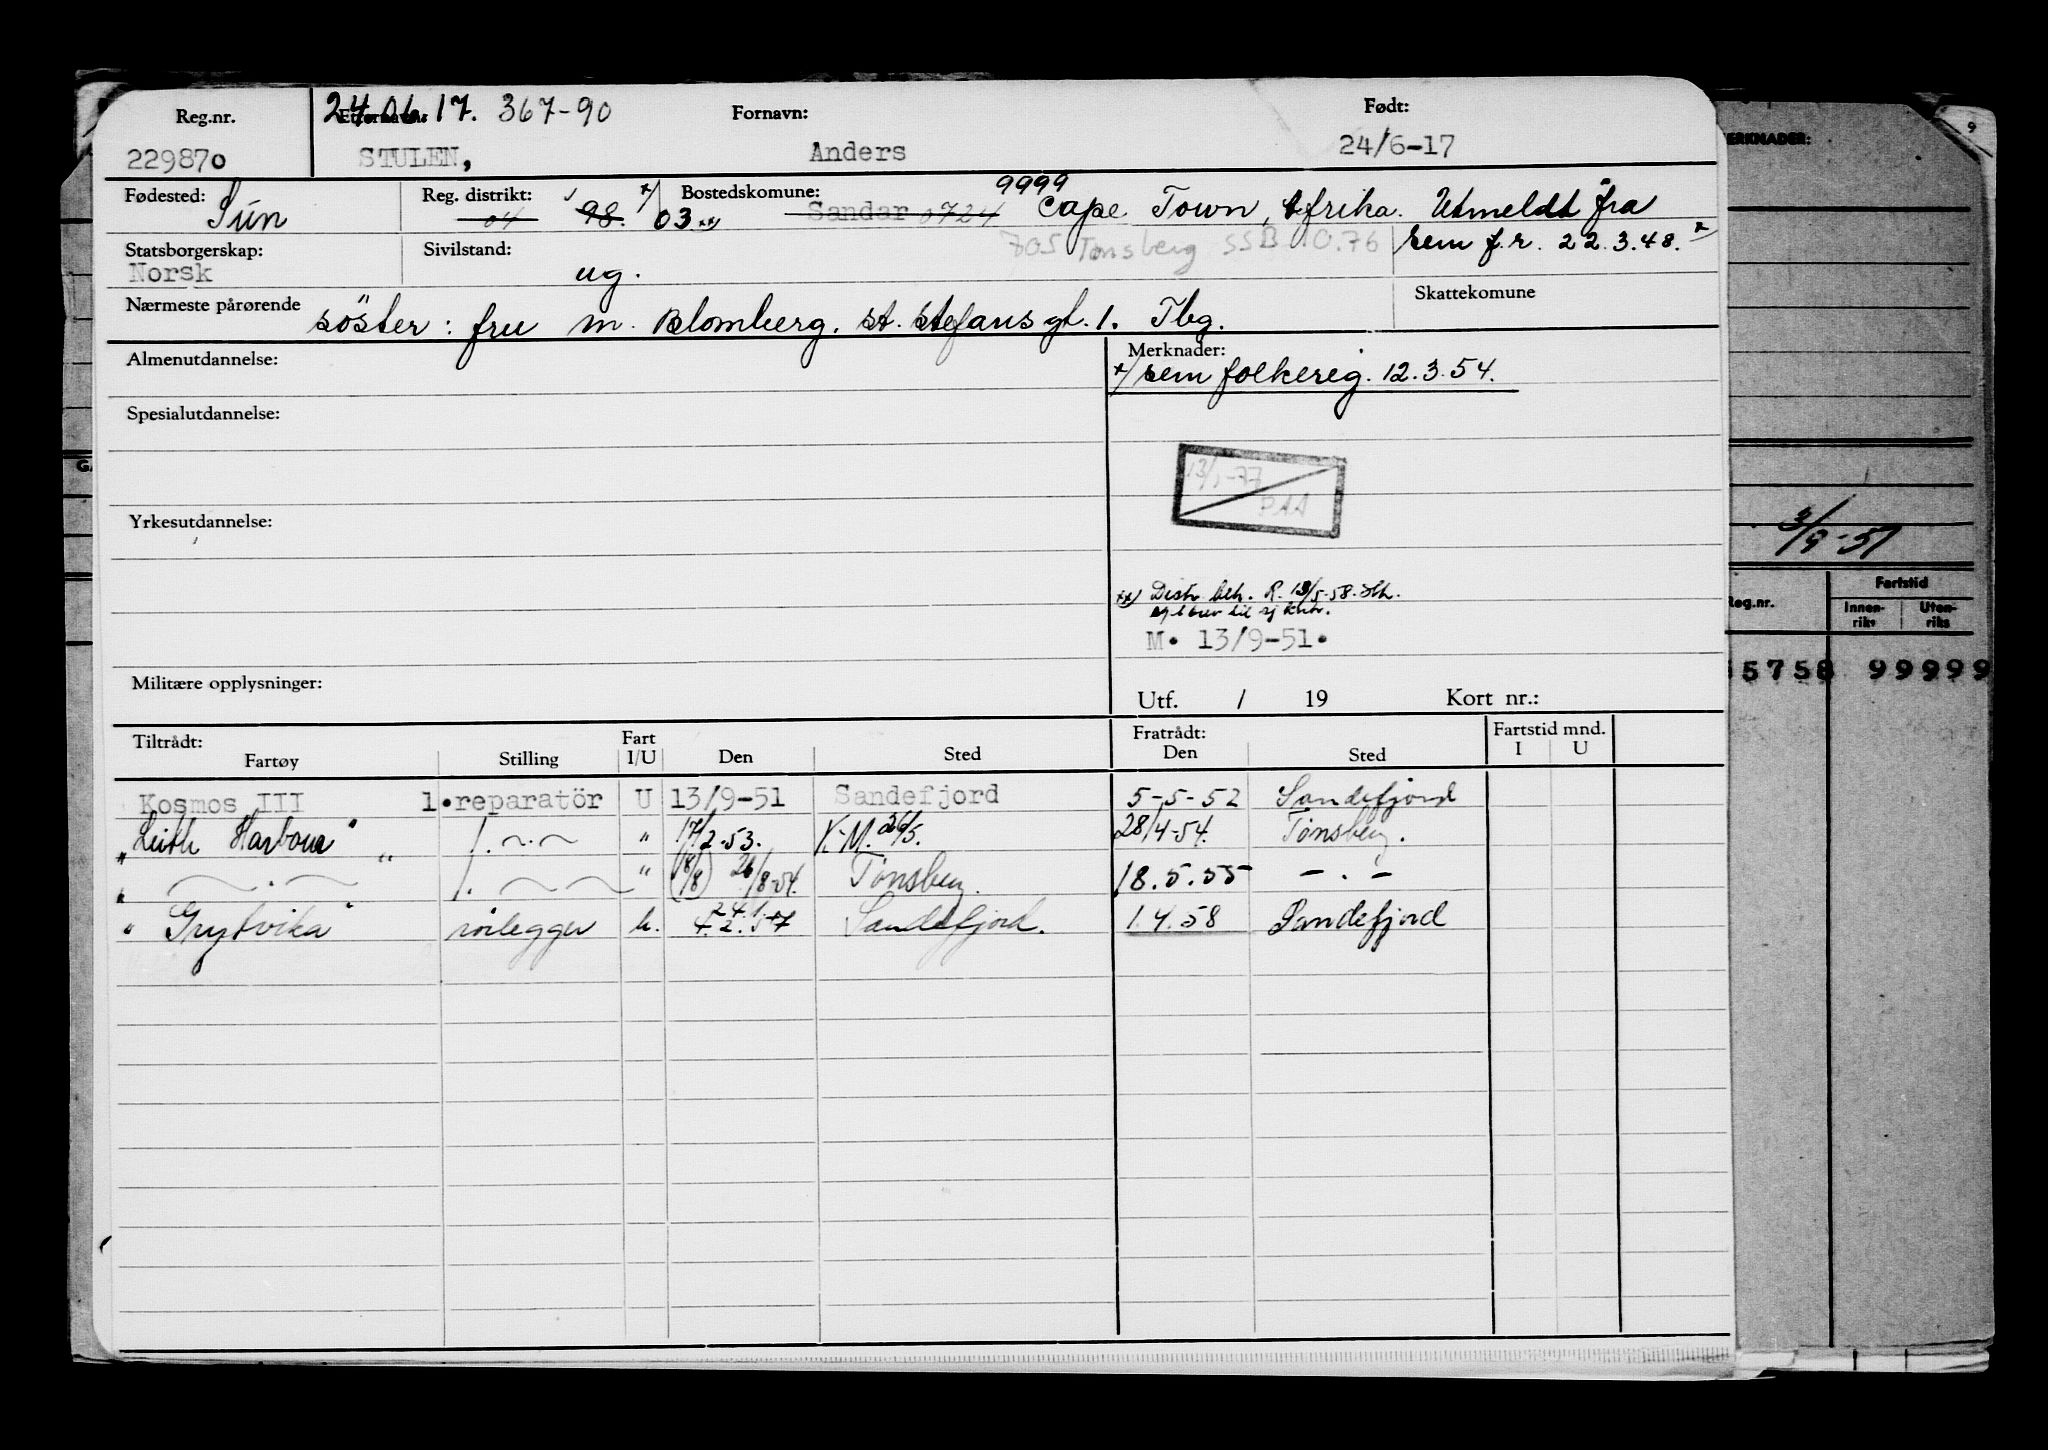 Reg.nr. Etternavn: 24.06.17. 367-90 Fornavn: Født:
229870 STULEN, Anders 24/6-17
Fødested: Sún Reg. distrikt: 04 98. x/ 03 xx/ Bostedskomune: Sandar 0724 9999 Cape Town, Afrika. Utmeldt fra
Statsborgerskap: Norsk Sivilstand: ug. 705 Tønsberg SSB 10.76 Sem f.r. 22.3.48. x/
Nærmeste pårørende söster: fru M. Blomberg. St. Stefans gt. 1. Tbg. Skattekomune
Almenutdannelse: Merknader:
x/ Sem folkereg. 12.3.54.
Spesialutdannelse:
13/1-77
PAA
Yrkesutdannelse:
xx/ Distr. R. 13/5-58.
M. 13/9-51.
Militære opplysninger: Utf. / 19 Kort nr.:
Tiltrådt: Fart Fratrådt: Fartstid mnd.
Fartøy Stilling I/U Den Sted Den Sted I U
Kosmos III 1. reparatör U 13/9-51 Sandefjord 5-5-52 Sandefjord
"Leith Harbour" 1. -·- " 17/2-53. K.M. 26/5. 28/4-54. Tønsberg.
" -·- 1. - - " (18/8) 26/8-54. Tønsberg. 18.5.55 -·-
"Grytvika" rörlegger u. 24.1. 4.2.57 Sandefjord. 1.4.58 Sandefjord
MERKNADER:
9
3/9-51
Reg.nr. Fartstid
Innen-riks Uten-riks
5758 99999